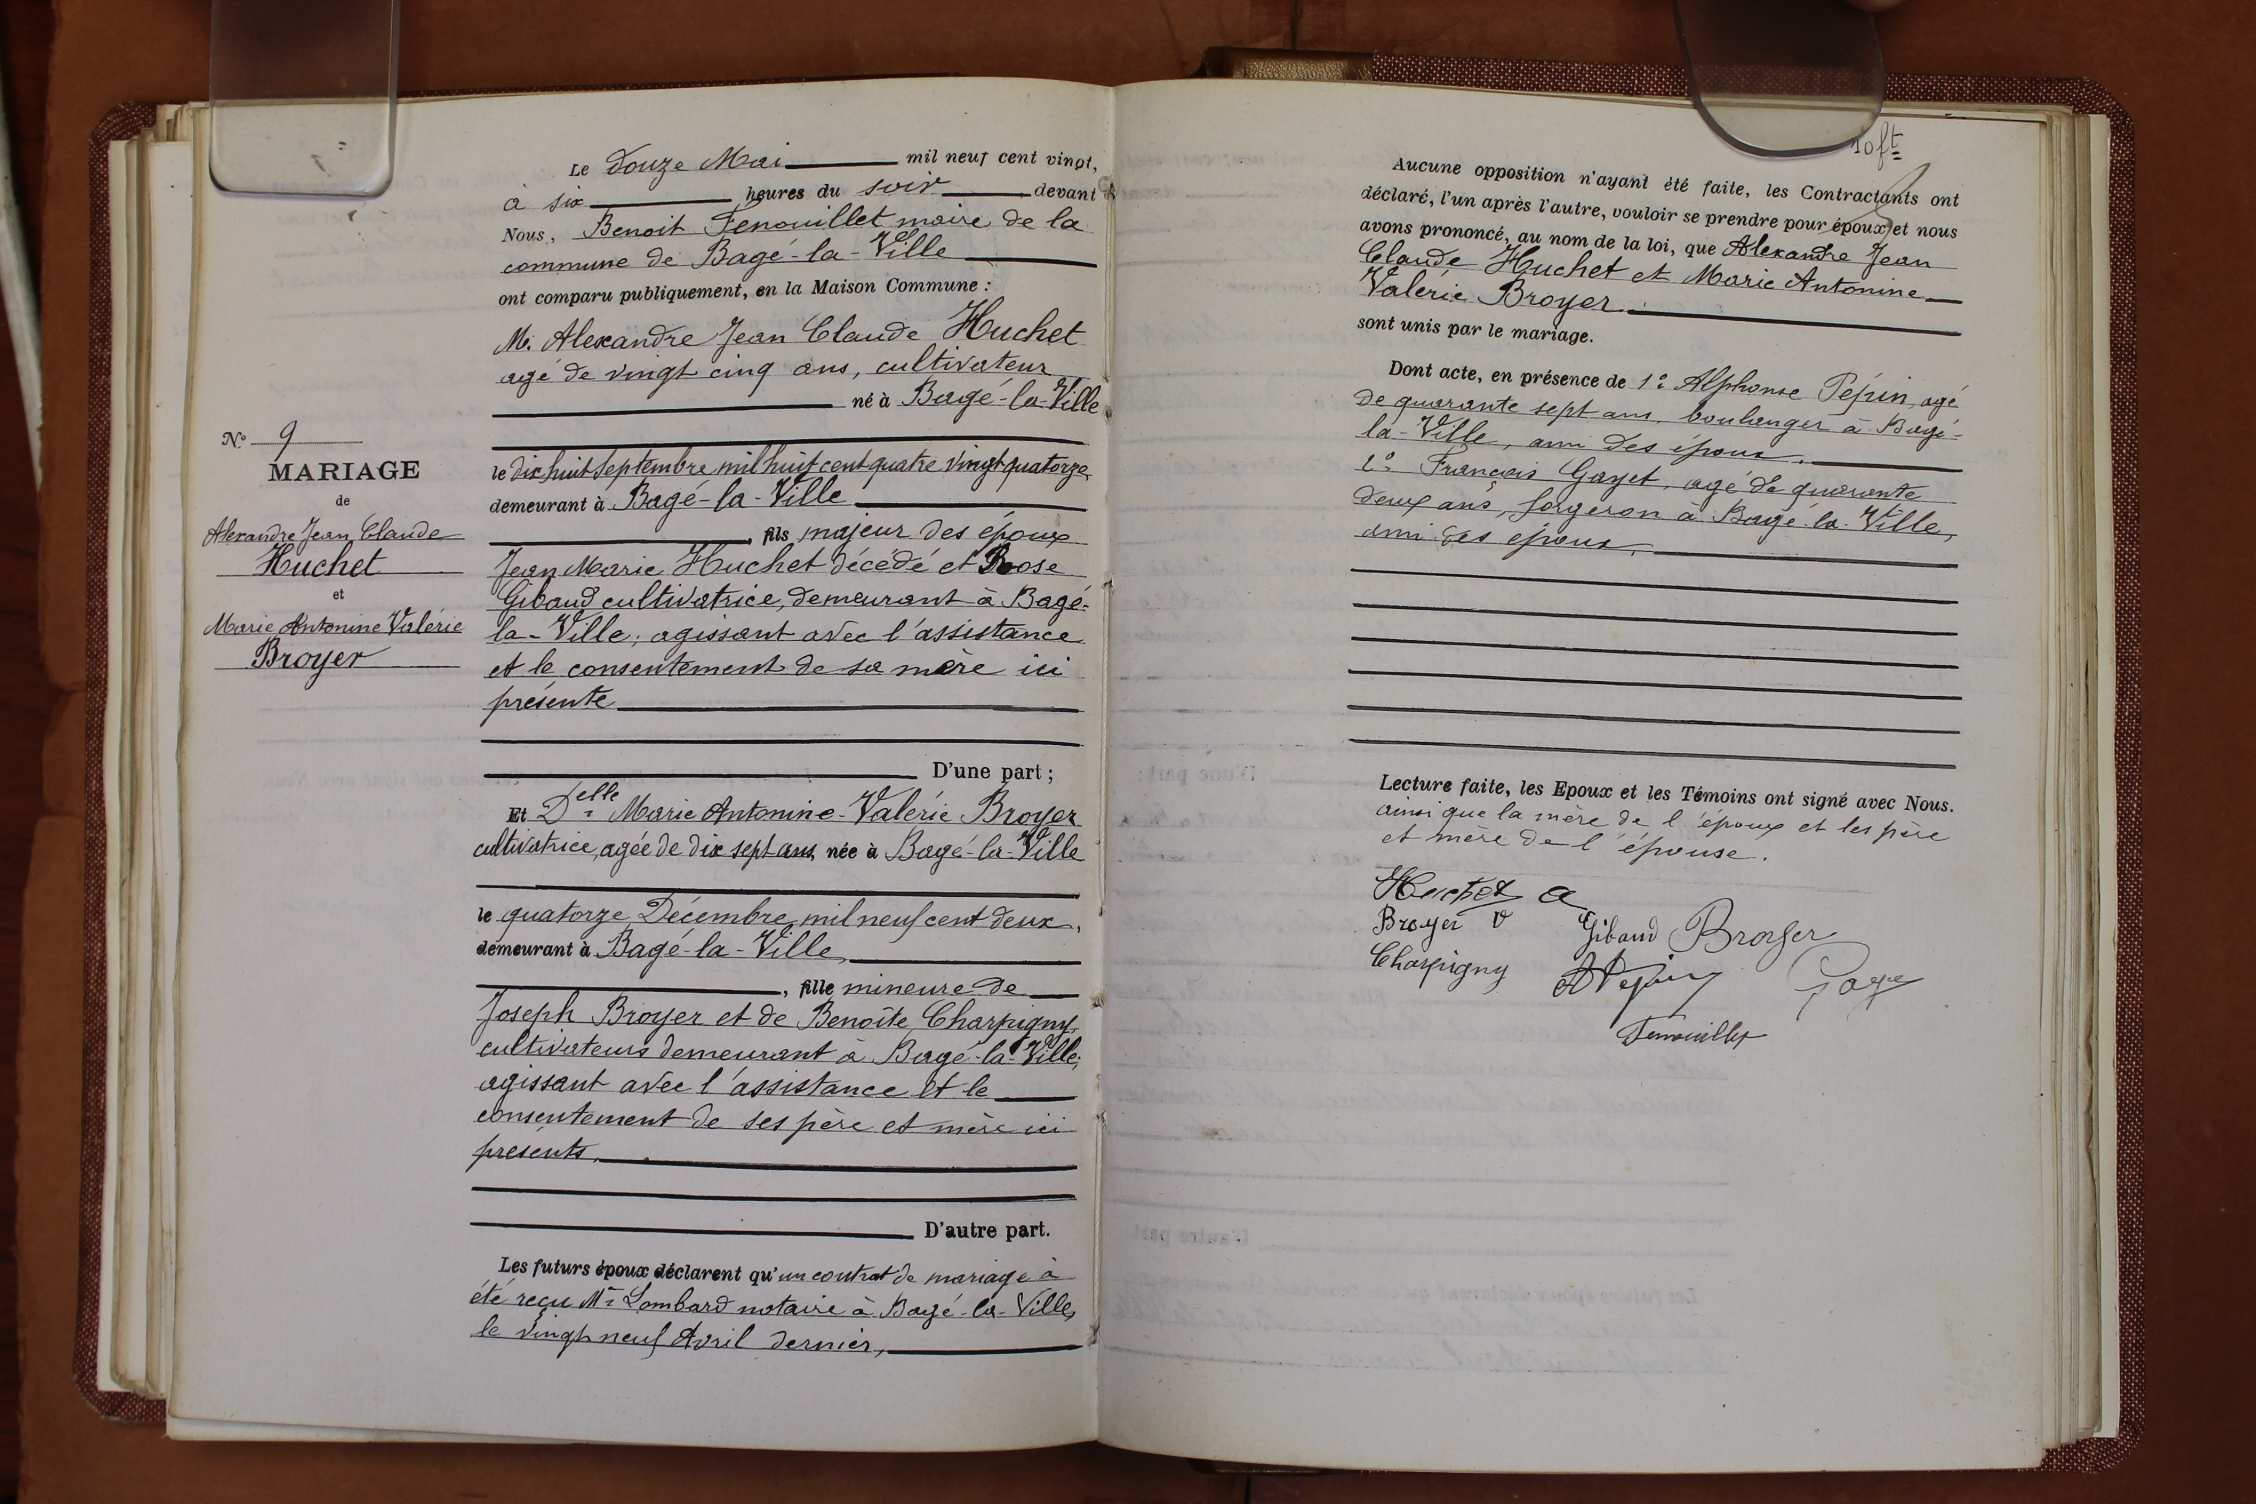 N° 9
MARIAGE
de
Alexandre Jean Claude
Huchet
et
Marie Antonine Valérie
Broyer
Le douze Mai mil neuf cent vingt,
à six heures du soir devant
Nous, Benoit Fenouillet maire de la
commune de Bagé-la-Ville
ont comparu publiquement, en la Maison Commune :
M. Alexandre Jean Claude Huchet
agé de vingt cinq ans, cultivateur
né à Bagé-la-Ville
le dix huit Septembre mil huit cent quatre vingt quatorze
demeurant à Bagé-la-Ville
, fils majeur des époux
Jean Marie Huchet décédé et Rose
Gibaud cultivatrice, demeurant à Bagé-
la-Ville; agissant avec l'assistance
et le consentement de sa mère ici
présente
D'une part ;
Et Delle Marie Antonine-Valérie Broyer
cultivatrice, agée de dix sept ans, née à Bagé-la-Ville
le quatorze Décembre mil neuf cent deux,
demeurant à Bagé-la-Ville,
, fille mineure de
Joseph Broyer et de Benoîte Charpigny,
cultivateurs demeurant à Bagé-la-Ville;
agissant avec l'assistance et le
consentement de ses père et mère ici
présents.
D'autre part.
Les futurs époux déclarent qu'un contrat de mariage à
été reçu Me Lombard notaire à Bagé-la-Ville,
le vingt neuf Avril dernier,
10 ft
Aucune opposition n'ayant été faite, les Contractants ont
déclaré, l'un après l'autre, vouloir se prendre pour époux et nous
avons prononcé, au nom de la loi, que Alexandre Jean
Claude Huchet et Marie Antonine
Valérie Broyer.
sont unis par le mariage.
Dont acte, en présence de 1° Alphonse Pépin, agé
de quarante sept ans, boulanger à Bagé-
la-Ville, ami des époux.
2° François Gayet, agé de quarante
deux ans, forgeron à Bagé-la-Ville,
ami des époux.
Lecture faite, les Epoux et les Témoins ont signé avec Nous.
ainsi que la mère de l'époux et les père
et mère de l'épouse.
Huchet a
Broyer v Gibaud Broyer
Charpigny A Pepin Gaye
Fenouillet